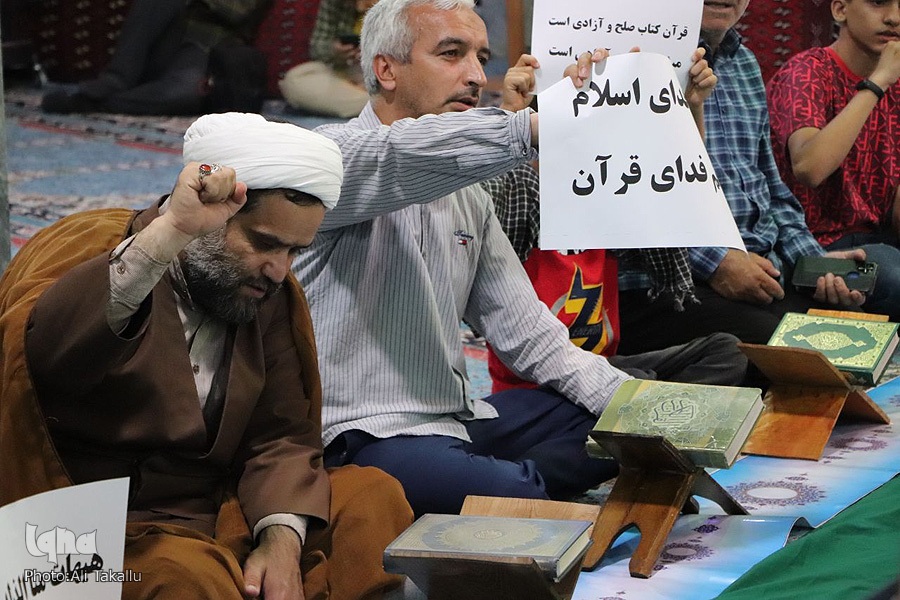 قرآن کتاب صلح و آزادی است
است
دای اسلام
فدای قرآن
هیهات منا
iqna
Photo:Ali Takallu